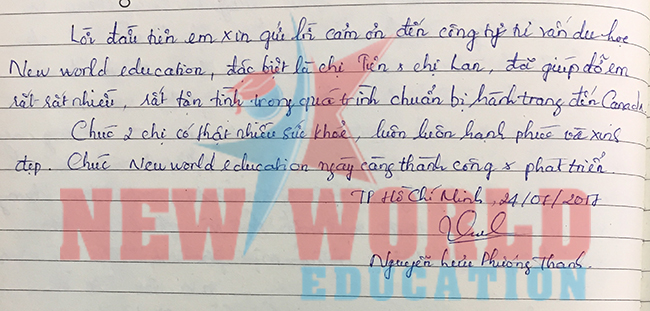 Lời đầu tiên em xin gửi lời cảm ơn đến công ty tư vấn du học
New world education, đặc biệt là chị Tiên & chị Lan, đã giúp đỡ em
rất rất nhiều, rất tận tình trong quá trình chuẩn bị hành trang đến Canada.
Chúc 2 chị có thật nhiều sức khoẻ, luôn luôn hạnh phúc và xinh
đẹp. Chúc New world education ngày càng thành công & phát triển.
TP Hồ Chí Minh,
Nguyễn Lưu Phương Thanh.
NEW WORLD
EDUCATION